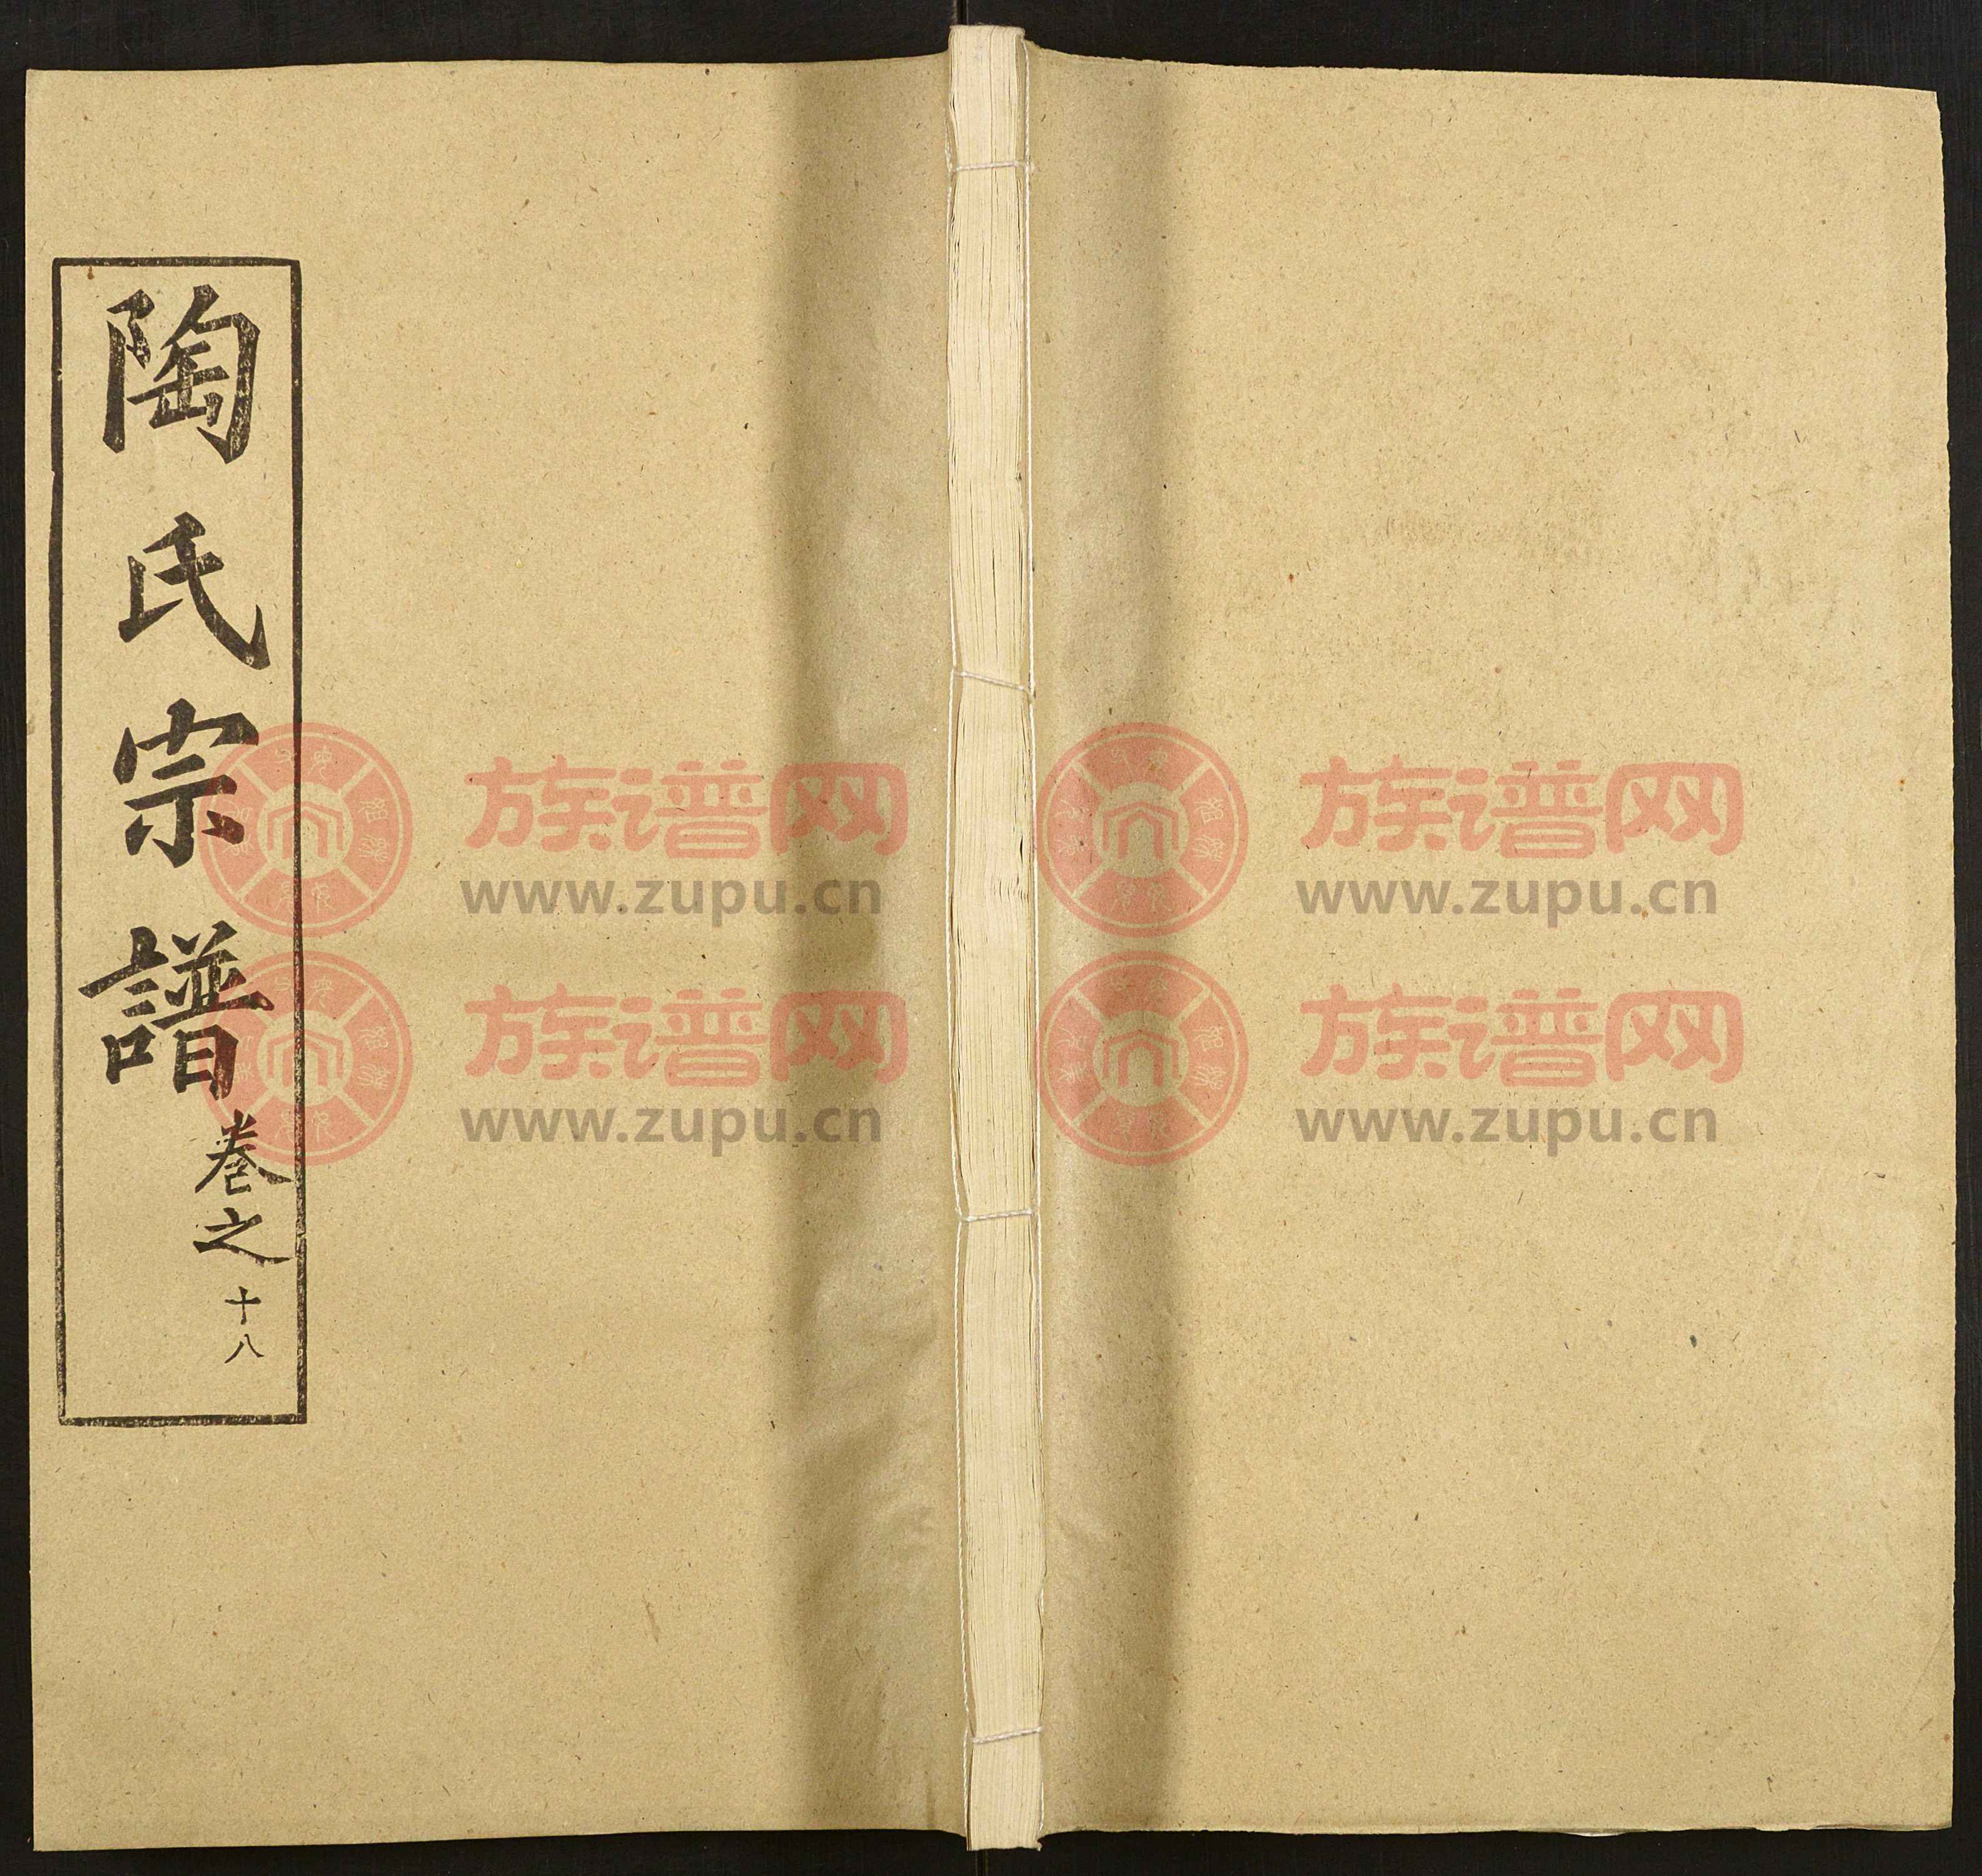 陶氏宗譜
卷之十八
族谱网
www.zupu.cn
族谱网
www.zupu.cn
族谱网
www.zupu.cn
族谱网
www.zupu.cn